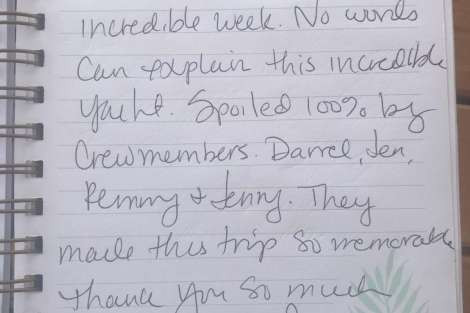 incredible week. No words
can explain this incredible
yacht. Spoiled 100% by
Crewmembers. Darrel, Jen,
Remmy & Jenny. They
made this trip so memorable
thank you so much